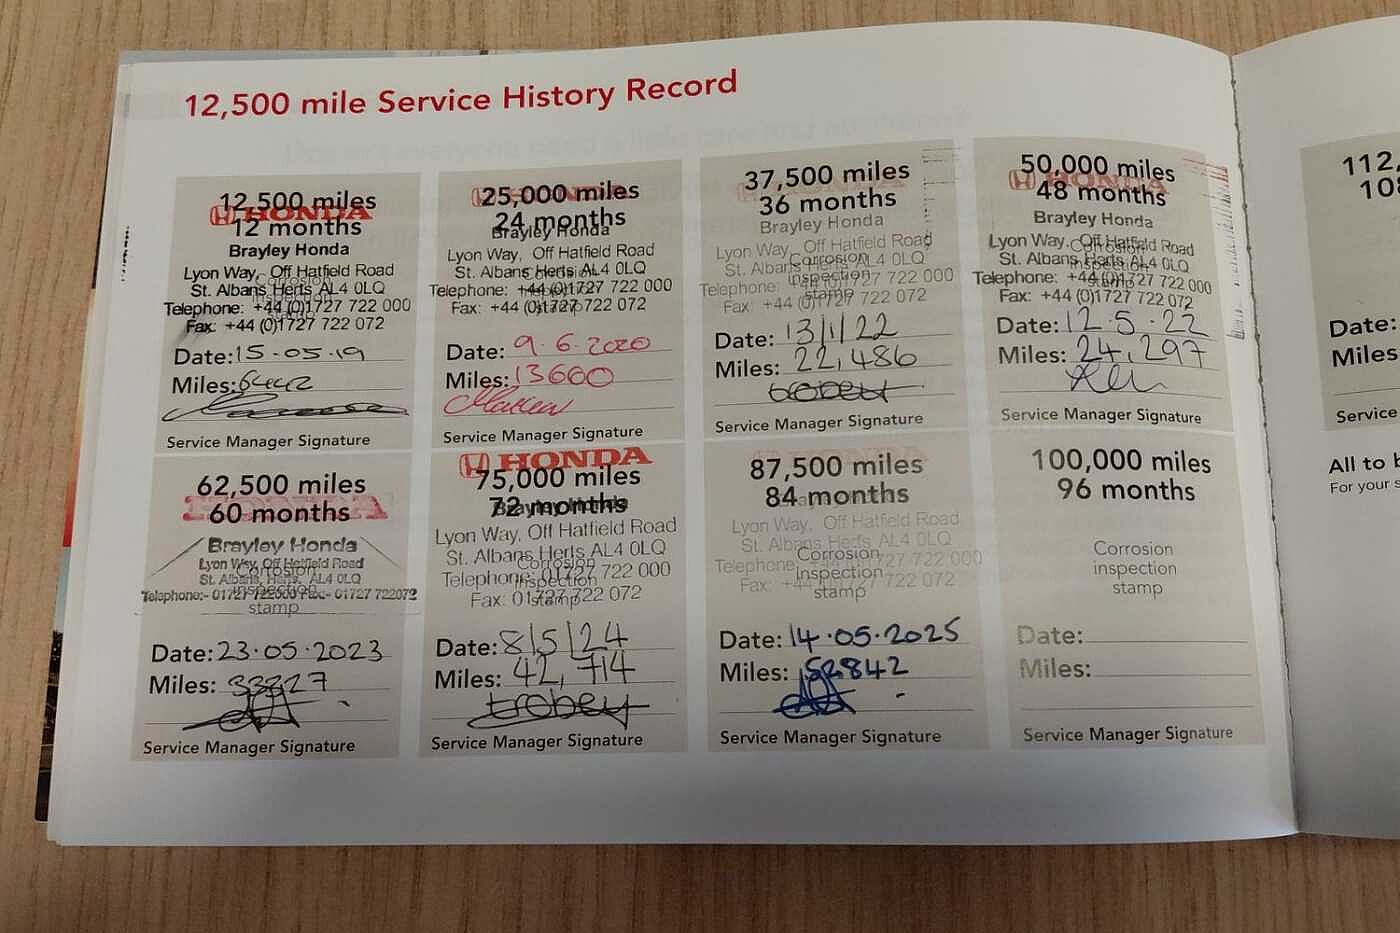 12,500 mile Service History Record
12,500 miles
HONDA
12 months
Brayley Honda
Lyon Way, Off Hatfield Road
St. Albans Herts AL4 0LQ
Corrosion
inspection
stamp
Telephone: +44 (0)1727 722 000
Fax: +44 (0)1727 722 072
Date: 15.05.19
Miles: 6442
Service Manager Signature
25,000 miles
HONDA
24 months
Brayley Honda
Lyon Way, Off Hatfield Road
St. Albans Herts AL4 0LQ
Corrosion
inspection
stamp
Telephone: +44 (0)1727 722 000
Fax: +44 (0)1727 722 072
Date: 9.6.2020
Miles: 13600
Service Manager Signature
37,500 miles
36 months
Brayley Honda
Lyon Way, Off Hatfield Road
St. Albans Herts AL4 0LQ
Corrosion
inspection
stamp
Telephone: +44 (0)1727 722 000
Fax: +44 (0)1727 722 072
Date: 13/1/22
Miles: 22,486
trobey
Service Manager Signature
50,000 miles
HONDA
48 months
Brayley Honda
Lyon Way, Off Hatfield Road
St. Albans Herts AL4 0LQ
Corrosion
inspection
stamp
Telephone: +44 (0)1727 722 000
Fax: +44 (0)1727 722 072
Date: 12.5.22
Miles: 24,297
Service Manager Signature
62,500 miles
HONDA
60 months
Brayley Honda
Lyon Way, Off Hatfield Road
St. Albans, Herts, AL4 0LQ
Corrosion
inspection
stamp
Telephone:- 01727 722000 Fax:- 01727 722072
Date: 23.05.2023
Miles: 33327
Service Manager Signature
HONDA
75,000 miles
72 months
Brayley Honda
Lyon Way, Off Hatfield Road
St. Albans Herts AL4 0LQ
Corrosion
inspection
stamp
Telephone: 01727 722 000
Fax: 01727 722 072
Date: 8/5/24
Miles: 42,714
trobey
Service Manager Signature
87,500 miles
84 months
Brayley Honda
Lyon Way, Off Hatfield Road
St. Albans Herts AL4 0LQ
Corrosion
Inspection
stamp
Telephone: +44 (0)1727 722 000
Fax: +44 (0)1727 722 072
Date: 14.05.2025
Miles: 52842
Service Manager Signature
100,000 miles
96 months
Corrosion
inspection
stamp
Date:
Miles:
Service Manager Signature
112,
10
Date:
Miles
Service
All to b
For your s